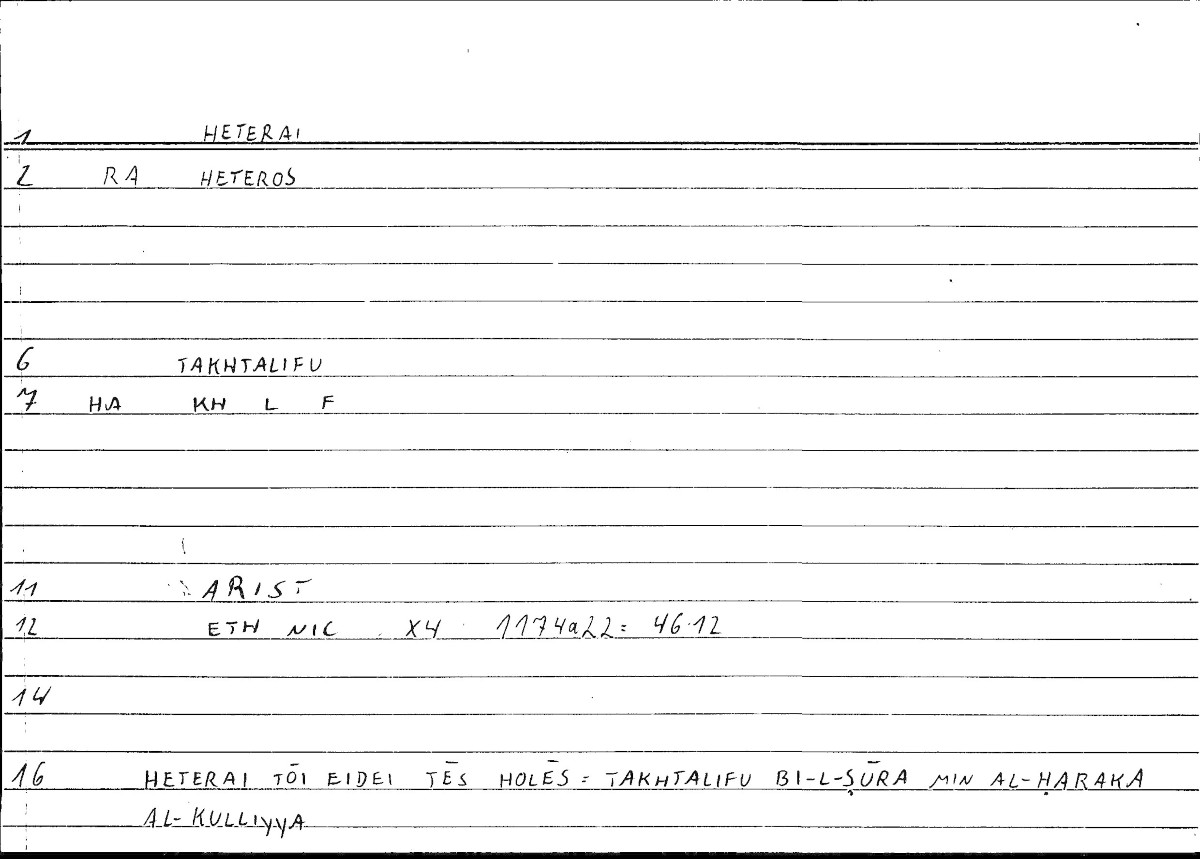 1 HETERAI
2 RA HETEROS
6 TAKHTALIFU
7 HA KH L F
11 ARIST
12 ETH NIC X4 1174a22 = 46.12
14
16 HETERAI TŌI EIDEI TĒS HOLĒS = TAKHTALIFU BI-L-ṢŪRA MIN AL-ḤARAKA
AL-KULLIYYA